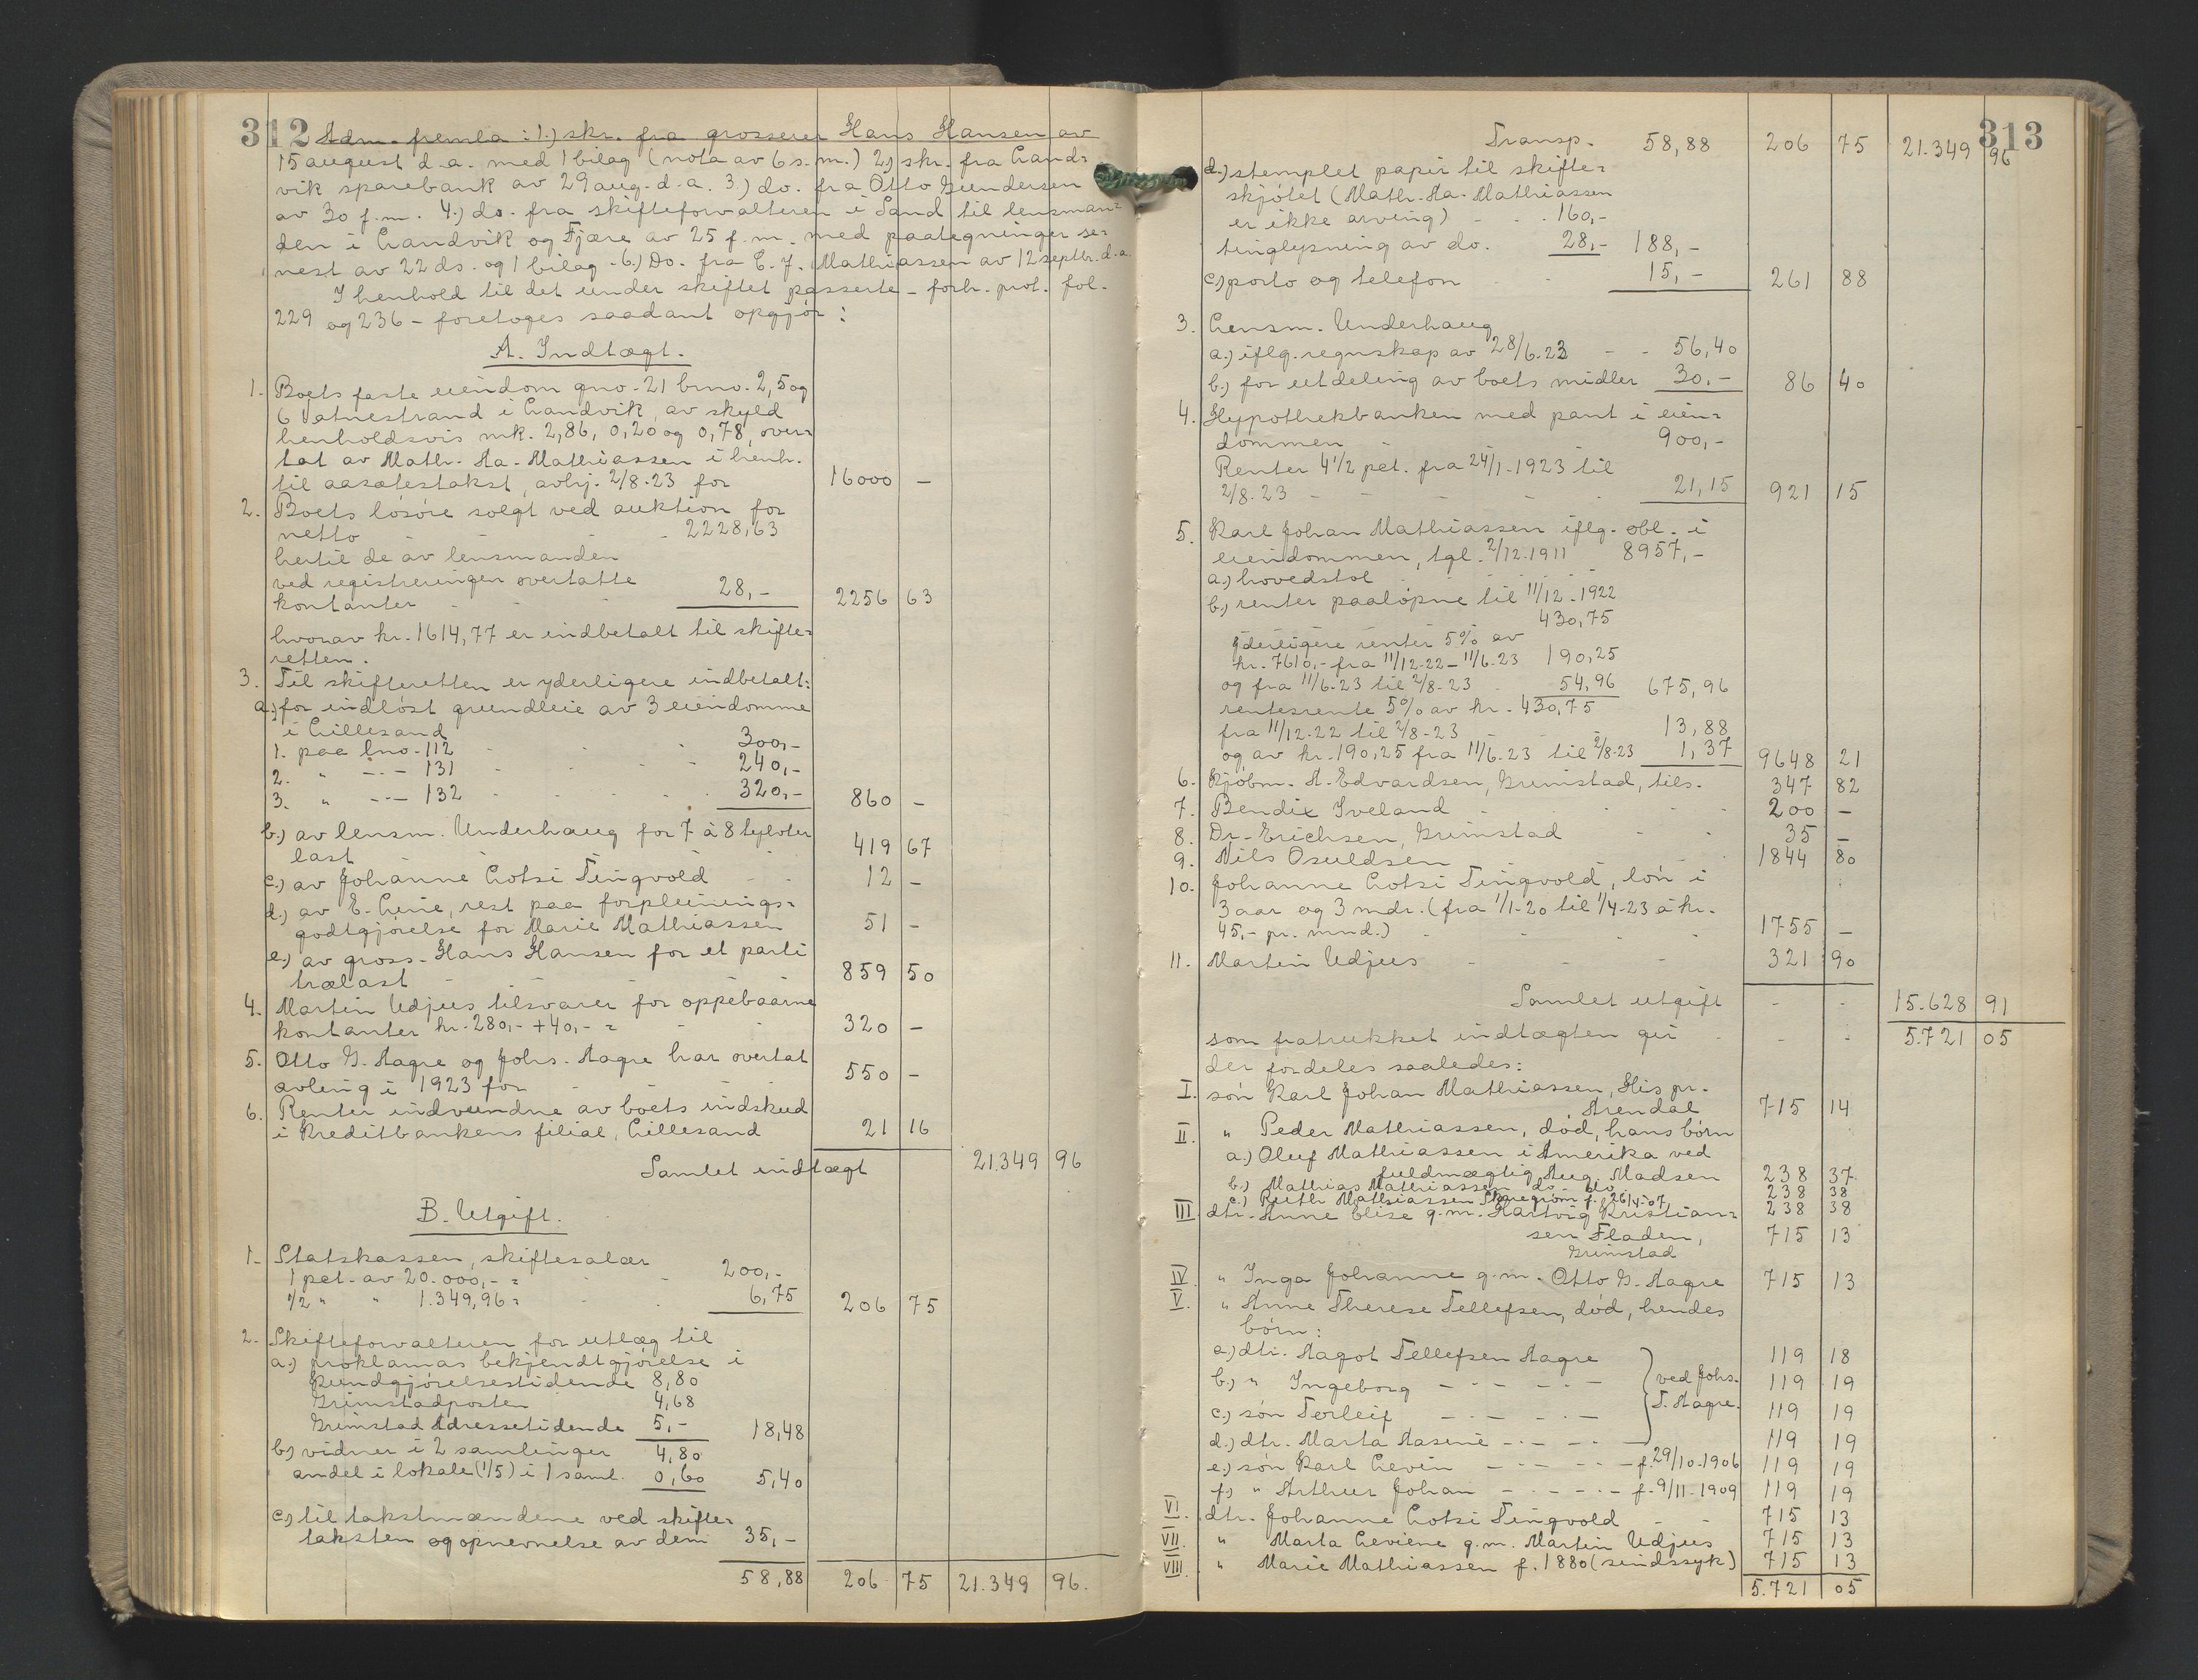 312
Adm. fremla: 1.) skr. fra grosserer Hans Hansen av
15 august d.a. med 1 bilag (nota av 6 s.m.) 2) skr. fra Land-
vik sparebank av 29 aug. d.a. 3.) do. fra Otto Gundersen
av 30 f.m. 4.) do. fra skifteforvalteren i Sand til lensman-
den i Landvik og Fjære av 25 f.m. med paategninger se-
nest av 22 ds. og 1 bilag. 6.) Do. fra C. J. Mathiassen av 12 septbr. d.a.
I henhold til det under skiftet passerte - forh. prot. fol.
229 og 236 - foretoges saadant opgjør:
A. Indtægt.
1. Boets faste eiendom gno. 21 brno. 2, 5 og
6 Vatnestrand i Landvik, av skyld
henholdsvis mk. 2,86, 0,20 og 0,78, over-
tat av Math. Aa. Mathiassen i henh.
til aasætestakst, avhj. 2/8-23 for 16000 -
2. Boets løsøre solgt ved auktion for
netto 2228,63
hertil de av lensmanden
ved registreringen overtatte
kontanter 28,- 2256 63
hvorav kr. 1614,77 er indbetalt til skifte-
retten.
3. Til skifteretten er yderligere indbetalt:
a.) for indløst grundleie av 3 eiendomme
i Lillesand
1. paa lno. 112 300,-
2. " -.- 131 240,-
3. " -.- 132 320,- 860 -
b.) av lensm. Underhaug for 7 à 8 tylvter
last 419 67
c.) av Johanne Lotsi Tingvold 12 -
d.) av E. Linie, rest paa forpleinings-
godtgjørelse for Marie Mathiassen 51 -
e.) av gross. Hans Hansen for et parti
trælast 859 50
4. Martin Udjus tilsvarer for oppebaarne
kontanter kr. 280,- + 40,- = 320 -
5. Otto G. Aagre og Johs. Aagre har overtat
avling i 1923 for 550 -
6. Renter indvundne av boets indskud
i Kreditbankens filial, Lillesand 21 16
Samlet indtægt 21.349 96
B. Utgift.
1. Statskassen, skiftesalær
1 pct. av 20.000,- = 200,-
1/2 " " 1.349,96 = 6,75 206 75
2. Skifteforvalteren for utlæg til
a.) proklamas bekjendtgjørelse i
Kundgjørelsestidende 8,80
Grimstadposten 4,68
Grimstad Adressetidende 5,- 18,48
b.) vidner i 2 samlinger 4,80
andel i lokale (1/5) i 1 saml. 0,60 5,40
c.) til takstmændene ved skifte-
taksten og opnevnelse av dem 35,-
58,88 206 75 21.349 96.
313
Transp. 58,88 206 75 21.349 96
d.) stemplet papir til skifte-
skjøtet (Math. Aa. Mathiassen
er ikke arving) 160,-
tinglysning av do. 28,- 188,-
e.) porto og telefon 15,- 261 88
3. Lensm. Underhaug
a.) iflg. regnskap av 28/6-23 56,40
b.) for utdeling av boets midler 30,- 86 40
4. Hypothekbanken med pant i eien-
dommen 900,-
Renter 4 1/2 pct. fra 24/1-1923 til
2/8-23 21,15 921 15
5. Karl Johan Mathiassen iflg. obl. i
eiendommen, tgl. 2/12-1911 8957,-
a.) hovedstol
b.) renter paaløpne til 11/12-1922
430,75
yderligere renter 5% av
kr. 7610,- fra 11/12-22 - 11/6-23 190,25
og fra 11/6-23 til 2/8-23 54,96 675,96
rentesrente 5% av kr. 430,75
fra 11/12-22 til 2/8-23 13,88
og av kr. 190,25 fra 11/6-23 til 2/8-23 1,37 9648 21
6. Kjøbm. A. Edvardsen, Grimstad, tils. 347 82
7. Bendix Iveland 200 -
8. Dr. Erichsen, Grimstad 35 -
9. Nils Osuldsen 1844 80
10. Johanne Lotsi Tingvold, løn i
3 aar og 3 mdr. (fra 1/1-20 til 1/4-23 à kr.
45,- pr. mnd.) 1755 -
11. Martin Udjus 321 90
Samlet utgift 15.628 91
som fratrukket indtægten gir 5.721 05
der fordeles saaledes:
I. søn Karl Johan Mathiassen, His pr.
Arendal 715 14
II. " Peder Mathiassen, død, hans børn
a.) Oluf Mathiassen i Amerika ved
fuldmægtig Aug. Madsen 238 37
b.) Mathias Mathiassen do. do. 238 38
c.) Ruth Mathiassen f. 26/4-07 238 38
III. dtr. Anne Elise g.m. Hartvig Kristian-
sen Fladen,
Grimstad 715 13
IV. " Inga Johanne g.m. Otto G. Aagre 715 13
V. " Anne Therese Tellefsen, død, hendes
børn:
a.) dtr. Aagot Tellefsen Aagre 119 18
b.) " Ingeborg -.- -.- ved Johs. 119 19
c.) søn Terleif -.- -.- T. Aagre. 119 19
d.) dtr. Marta Aasene -.- -.- 119 19
e.) søn Karl Levin -.- -.- f. 29/10-1906 119 19
f.) " Arthur Johan -.- -.- f. 9/11-1909 119 19
VI. dtr. Johanne Lotsi Tingvold 715 13
VII. " Marta Leviene g.m. Martin Udjus 715 13
VIII. " Marie Mathiassen f. 1880 (sindssyk) 715 13
5.721 05